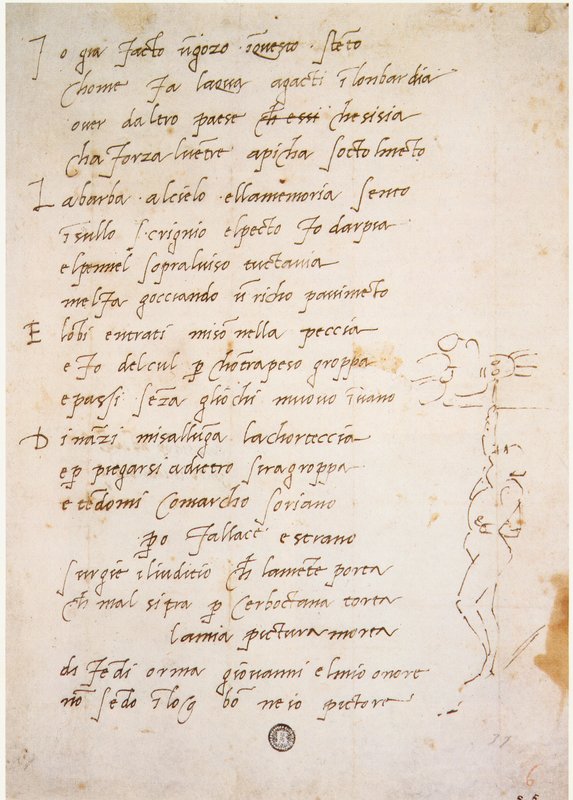 I o gia facto ñ gozo ĩ questo stẽto
chome fa laqua agacti ĩ lonbardia
over daltro paese ch essi chesisia
cha forza luẽtre apicha socto lmẽto
L abarba alcielo ellamemoria sento
ĩ sullo scrignio elpecto fo darpia
elpennel sopraluiso tuctavia
melfa gocciando ũ richo pavimẽto
E lõbi entrati misõ nella peccia
e fo delcul p chõtrapeso groppa
e passi sẽza gliochi muovo ĩ vano
D inãzi misallũga lachorteccia
e p piegarsi adietro siragroppa
e tẽdomi comarcho soriano
po fallace e strano
surgie iliuditio ch lamẽte porta
ch mal si tra p cerboctana torta
lamia pictura morta
di fẽdi orma giovanni elmio onore
nõ sẽdo ĩ loco bõ ne io pictore
37
6